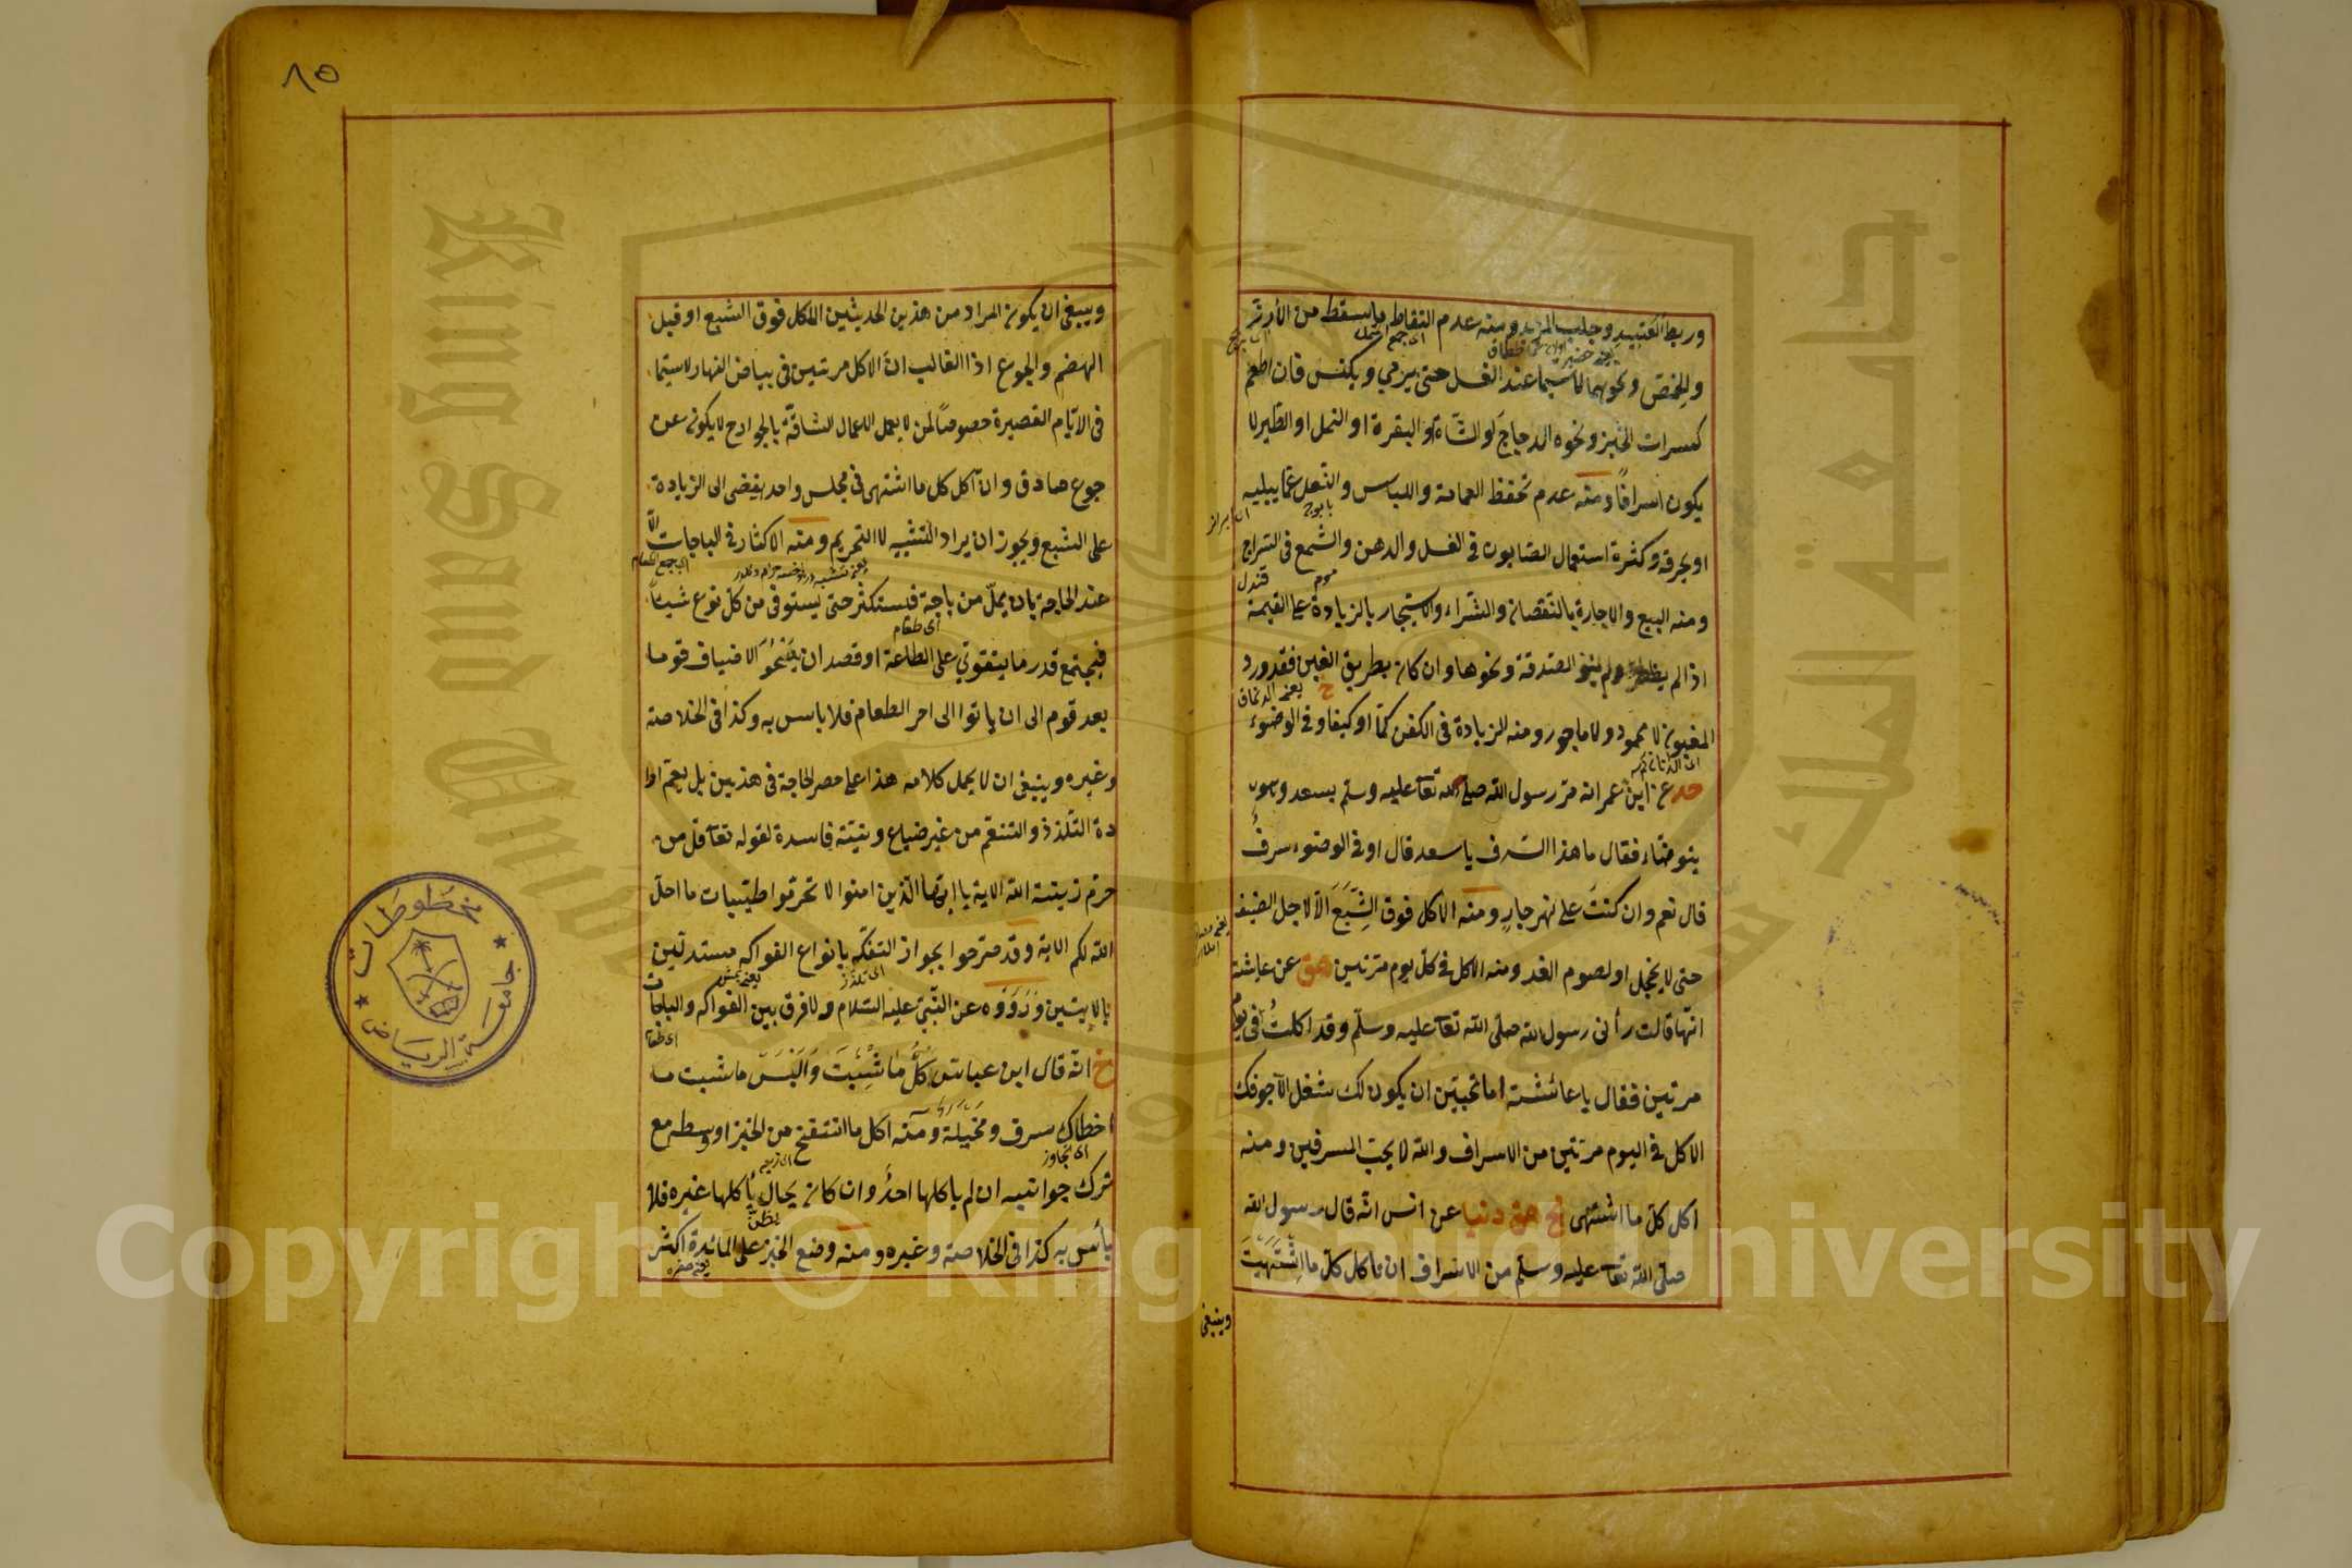 وربط العتبيد وجلب المزيد ومنه عدم التقاط ما سقط من الأرز
والحمّص ونحوهما لا سيما عند الغسل حتى يرمي ويكنس فان اطعم
كسرات الخبز ونحوه الدجاج او الشاة او البقرة او النمل او الطير لا
يكون اسرافا ومنه عدم تحفظ العمامة واللباس والنعل عما يبليه
او يحرقه وكثرة استعمال الصابون في الغسل والدهن والشمع في السراج
ومنه البيع والاجارة بالنقصان والشراء والاستيجار بالزيادة على القيمة
اذا لم ولم ينو الصدقة ونحوها وان كان بطريق الغبن فقد ورد
المغبون لا محمود ولا ماجور ومنه الزيادة في الكفن كمّا او كيفا وفي الوضوء
حد عن ابن عمر انه مرّ رسول الله صلى الله تعا عليه وسلم بسعد وهو
يتوضاء فقال ما هذا السرف يا سعد قال او في الوضوء سرف
قال نعم وان كنت على نهر جار ومنه الاكل فوق الشبع الّا لاجل الضيف
حتى لا يخجل او لصوم الغد ومنه الاكل في كل يوم مرتين هق عن عايشة
انّها قالت رأني رسول الله صلى الله تعا عليه وسلم وقد اكلت في يوم
مرتين فقال يا عائشة اما تحبين ان يكون لك شغل الّا جوفك
الاكل في اليوم مرتين من الاسراف والله لا يحب المسرفين ومنه
اكل كلّ ما اشتهى هق دنيا عن انس انّه قال رسول الله
صلى الله تعا عليه وسلم من الاسراف ان تأكل كلّ ما اشتهيت
وينبغي
٨٥
وينبغي ان يكون المراد من هذين الحديثين الاكل فوق الشبع او قبل
الهضم والجوع اذ الغالب انّ الاكل مرتين في بياض النهار لا سيّما
في الايّام القصيرة خصوصًا لمن لا يعمل الاعمال الشاقّة بالجوارح لا يكون عن
جوع صادق وانّ اكل كل ما اشتهى في مجلس واحد يفضى الى الزيادة
على الشبع ويجوز ان يراد التشبيه لا التحريم ومنه الاكثار في الباجات الّا
عند الحاجة بان يملّ من باجة فيستكثر حتى يستوفى من كل نوع شيئاً
اى طعام
فيجتمع قدر ما يتقوى على الطاعة او قصد ان الاضياف قوما
بعد قوم الى ان ياتوا الى اخر الطعام فلا باس به وكذا في الخلاصة
وغيره وينبغي ان لا يحمل كلامه هذا على حصر الحاجة في هذين بل يعمّ ارا
دة التلذذ والتنعّم من غير ضياع ونيّة فاسدة لقوله تعا قل من
حرّم زينة الله الاية يا ايّها الّذين امنوا لا تحرّموا طيّبات ما احلّ
الله لكم الاية وقد صرّحوا بجواز التفكّه بانواع الفواكه مستدلّين
بالايتين وَرَوَوْه عن النّبي عليه السّلام ولا فرق بين الفواكه والباجات
خ انّه قال ابن عباس كُلْ ما شِئتَ وَالبَسْ ما شئت ما
اخطاك سرف ومخيلة ومنه اكل ما انتفخ من الخبز او وسطه مع
اى تجاوز
ترك جوانبه ان لم ياكلها احدٌ وان كان بحال يأكلها غيره فلا
بأس به كذا في الخلاصة وغيره ومنه وضع الخبز على المائدة اكثر
مخطوطات
جامعة الرياض
جامعة الملك
King Saud
Copyright © King Saud University